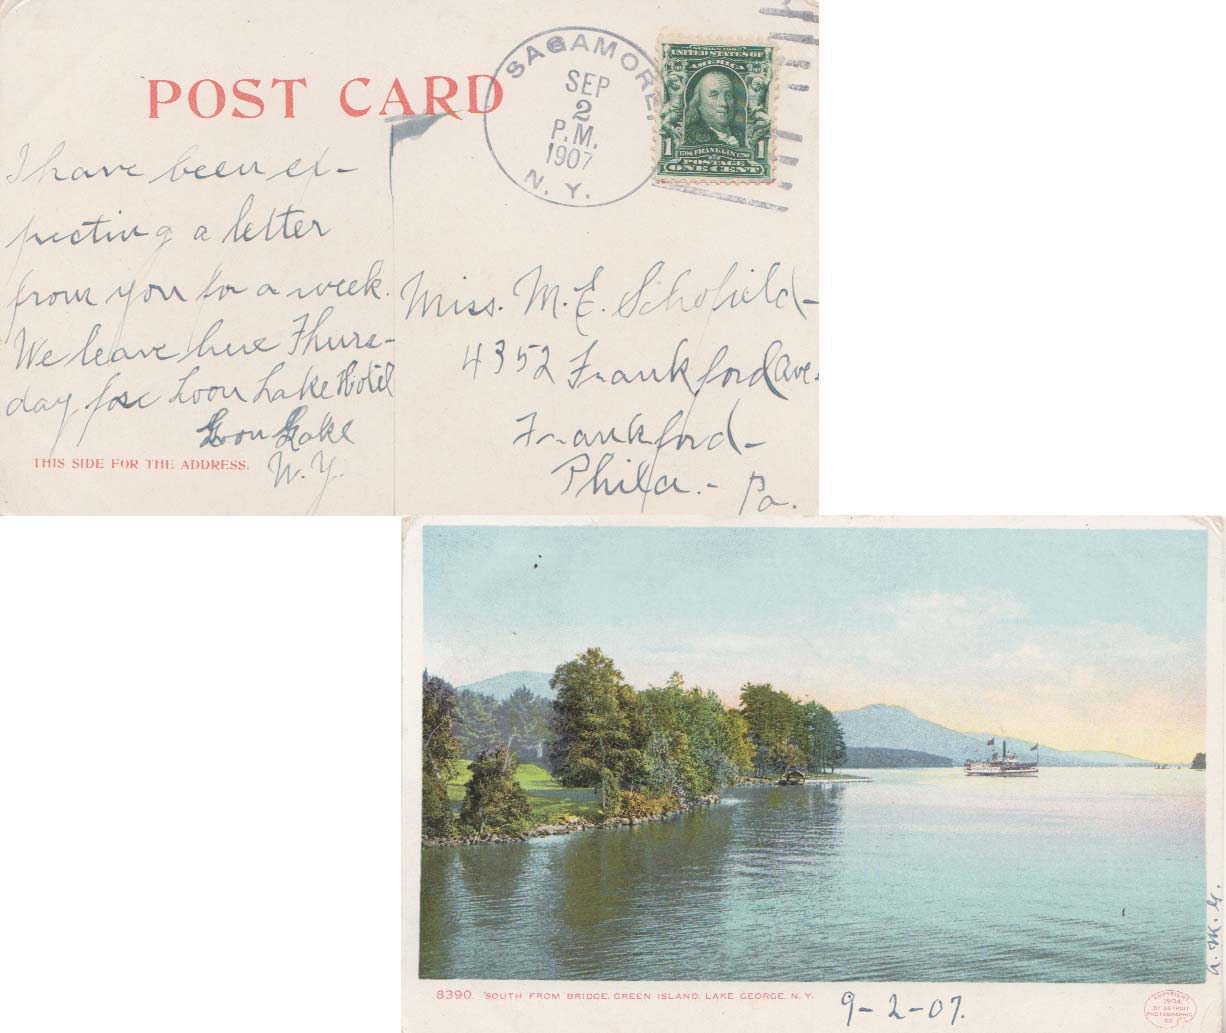 POST CARD
SAGAMORE.
SEP
2
P.M.
1907
N. Y.
SERIES 1902
UNITED STATES OF
AMERICA
1 1706 FRANKLIN 1790 1
POSTAGE
ONE CENT
I have been ex-
pecting a letter
from you for a week.
We leave here Thurs-
day for Loon Lake Hotel
Loon Lake
N. Y.
THIS SIDE FOR THE ADDRESS.
Miss. M. E. Schofield-
4352 Frankford Ave.
Frankford-
Phila.- Pa.
a. M. G.
8390. SOUTH FROM BRIDGE, GREEN ISLAND, LAKE GEORGE, N. Y.
9-2-07.
COPYRIGHT,
1904,
BY DETROIT
PHOTOGRAPHIC
CO.